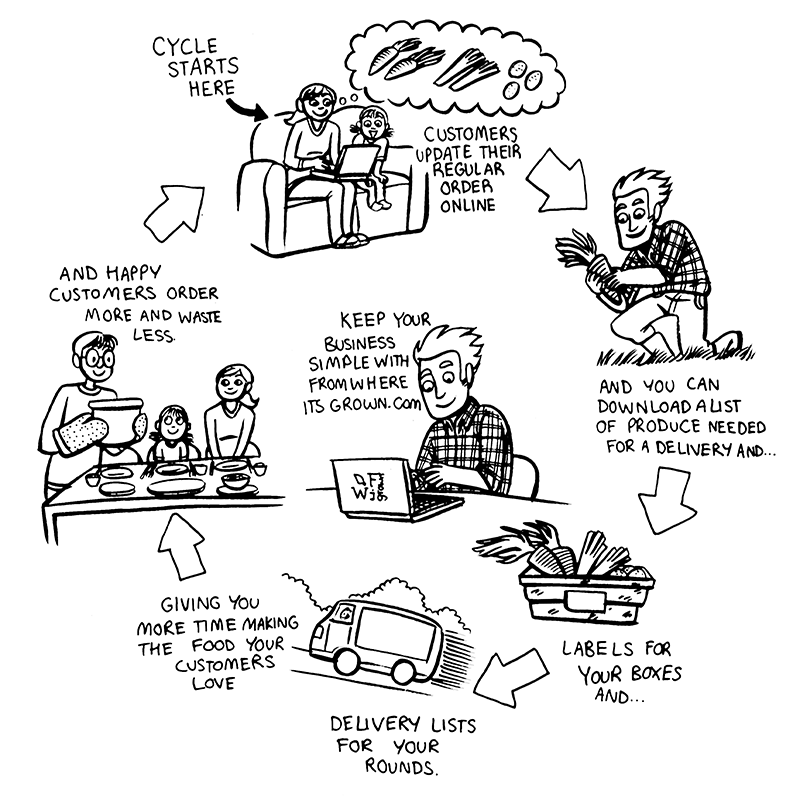 CYCLE
STARTS
HERE
CUSTOMERS
UPDATE THEIR
REGULAR
ORDER
ONLINE
AND YOU CAN
DOWNLOAD A LIST
OF PRODUCE NEEDED
FOR A DELIVERY AND...
LABELS FOR
YOUR BOXES
AND...
DELIVERY LISTS
FOR YOUR
ROUNDS.
GIVING YOU
MORE TIME MAKING
THE FOOD YOUR
CUSTOMERS
LOVE
AND HAPPY
CUSTOMERS ORDER
MORE AND WASTE
LESS.
KEEP YOUR
BUSINESS
SIMPLE WITH
FROMWHERE
ITSGROWN.COM